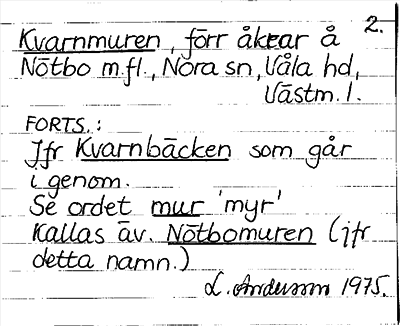 2.
Kvarnmuren, förr åkrar å
Nötbo m.fl., Nora sn, Våla hd,
Västm. l.
FORTS.:
Jfr Kvarnbäcken som går
igenom.
Se ordet mur 'myr'
Kallas äv. Nötbomuren (jfr
detta namn.)
L. Andersson 1975.